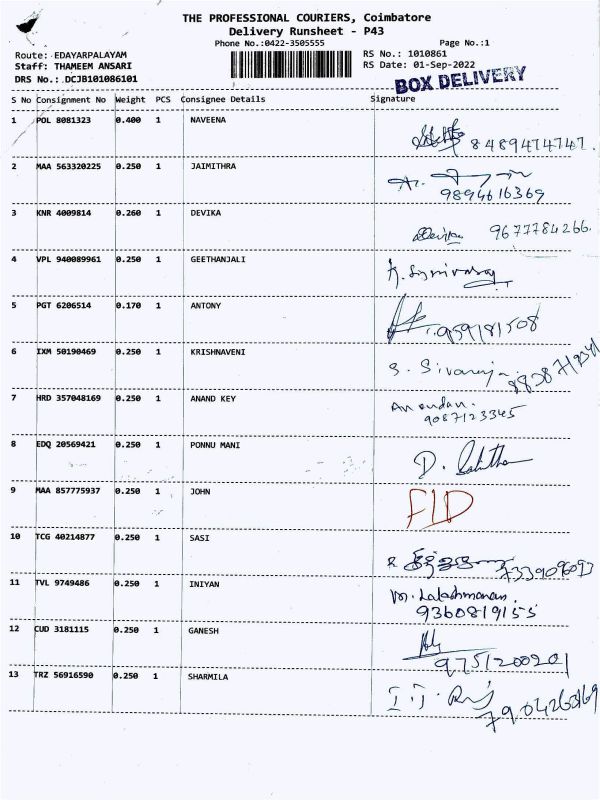 THE PROFESSIONAL COURIERS, Coimbatore
Delivery Runsheet - P43
Phone No.:0422-3505555 Page No.:1
Route: EDAYARPALAYAM RS No.: 1010861
Staff: THAMEEM ANSARI RS Date: 01-Sep-2022
DRS No.: DCJB101086101
BOX DELIVERY
S No Consignment No Weight PCS Consignee Details Signature
1 POL 8081323 0.400 1 NAVEENA
8489474747.
2 MAA 563320225 0.250 1 JAIMITHRA
9894616369
3 KNR 4009814 0.260 1 DEVIKA
Devika 9677784266.
4 VPL 940089961 0.250 1 GEETHANJALI
5 PGT 6206514 0.170 1 ANTONY
6 IXM 50190469 0.250 1 KRISHNAVENI
7 HRD 357048169 0.250 1 ANAND KEY
Anandan.
9087123345
8 EDQ 20569421 0.250 1 PONNU MANI
9 MAA 857775937 0.250 1 JOHN
FID
10 TCG 40214877 0.250 1 SASI
11 TVL 9749486 0.250 1 INIYAN
M. Lakshmanan.
9360819155
12 CUD 3181115 0.250 1 GANESH
9751200201
13 TRZ 56916590 0.250 1 SHARMILA